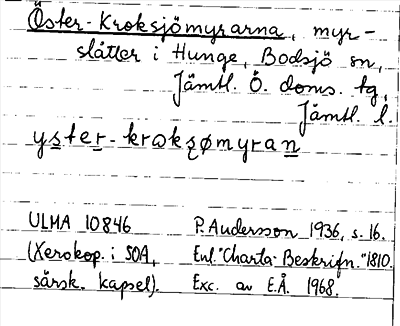 Öster-Kroksjömyrarna, myr-
slåtter i Hunge, Bodsjö sn,
Jämtl. Ö. doms. tg,
Jämtl. l.
yster-kroksømyran
ULMA 10846
(Xerokop. i SOA,
särsk. kapsel).
P. Andersson 1936, s. 16.
Enl. "Charta-Beskrifn." 1810.
Exc. av E.Å. 1968.